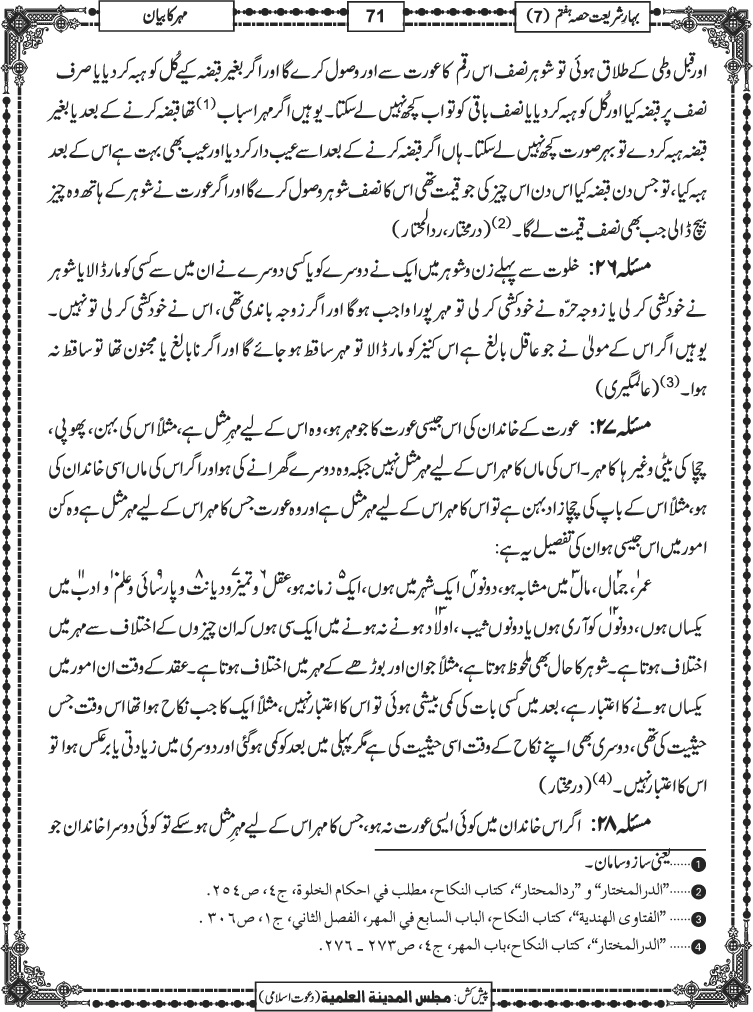 بہارِ شریعت حصہ ہفتم (7)
71
مہر کا بیان
اور قبل وطی کے طلاق ہوئی تو شوہر نصف اس رقم کا عورت سے اور وصول کرے گا اور اگر بغیر قبضہ کیے کُل کو ہبہ کر دیا یا صرف
نصف پر قبضہ کیا اور کُل کو ہبہ کر دیا یا نصف باقی کو تو اب کچھ نہیں لے سکتا۔ یوہیں اگر مہر اسباب(1) تھا قبضہ کرنے کے بعد یا بغیر
قبضہ ہبہ کر دے تو بہر صورت کچھ نہیں لے سکتا۔ ہاں اگر قبضہ کرنے کے بعد اسے عیب دار کر دیا اور عیب بھی بہت ہے اس کے بعد
ہبہ کیا، تو جس دن قبضہ کیا اس دن اس چیز کی جو قیمت تھی اس کا نصف شوہر وصول کرے گا اور اگر عورت نے شوہر کے ہاتھ وہ چیز
بیچ ڈالی جب بھی نصف قیمت لے گا۔(2) (درمختار، ردالمحتار)
مسئلہ ۲۶: خلوت سے پہلے زن و شوہر میں ایک نے دوسرے کو یا کسی دوسرے نے ان میں سے کسی کو مار ڈالا یا شوہر
نے خودکشی کر لی یا زوجہ حرّہ نے خودکشی کر لی تو مہر پورا واجب ہوگا اور اگر زوجہ باندی تھی، اس نے خودکشی کر لی تو نہیں۔
یوہیں اگر اس کے مولیٰ نے جو عاقل بالغ ہے اس کنیز کو مار ڈالا تو مہر ساقط ہو جائے گا اور اگر نابالغ یا مجنون تھا تو ساقط نہ
ہوا۔(3) (عالمگیری)
مسئلہ ۲۷: عورت کے خاندان کی اس جیسی عورت کا جو مہر ہو، وہ اس کے لیے مہرِ مثل ہے، مثلاً اس کی بہن، پھوپی،
چچا کی بیٹی وغیرہا کا مہر۔ اس کی ماں کا مہر اس کے لیے مہرِ مثل نہیں جبکہ وہ دوسرے گھرانے کی ہو اور اگر اس کی ماں اسی خاندان کی
ہو، مثلاً اس کے باپ کی چچا زاد بہن ہے تو اس کا مہر اس کے لیے مہرِ مثل ہے اور وہ عورت جس کا مہر اس کے لیے مہرِ مثل ہے وہ کن
امور میں اس جیسی ہو ان کی تفصیل یہ ہے:
عمر۱، جمال۲، مال۳ میں مشابہ ہو، دونوں۴ ایک شہر میں ہوں، ایک۵ زمانہ ہو، عقل۶ و تمیز۷ و دیانت۸ و پارسائی۹ و علم۱۰ و ادب۱۱ میں
یکساں ہوں، دونوں۱۲ کو آری ہوں یا دونوں ثیب، اولاد۱۳ ہونے نہ ہونے میں ایک سی ہوں کہ ان چیزوں کے اختلاف سے مہر میں
اختلاف ہوتا ہے۔ شوہر کا حال بھی ملحوظ ہوتا ہے، مثلاً جوان اور بوڑھے کے مہر میں اختلاف ہوتا ہے۔ عقد کے وقت ان امور میں
یکساں ہونے کا اعتبار ہے، بعد میں کسی بات کی کمی بیشی ہوئی تو اس کا اعتبار نہیں، مثلاً ایک کا جب نکاح ہوا تھا اس وقت جس
حیثیت کی تھی، دوسری بھی اپنے نکاح کے وقت اسی حیثیت کی ہے مگر پہلی میں بعد کو کمی ہوگئی اور دوسری میں زیادتی یا برعکس ہوا تو
اس کا اعتبار نہیں۔(4) (درمختار)
مسئلہ ۲۸: اگر اس خاندان میں کوئی ایسی عورت نہ ہو، جس کا مہر اس کے لیے مہرِ مثل ہو سکے تو کوئی دوسرا خاندان جو
1 ......یعنی ساز و سامان۔
2 ......"الدرالمختار" و "ردالمحتار"، كتاب النكاح، مطلب في احكام الخلوة، ج٤، ص٢٥٤.
3 ......"الفتاوى الهندية"، كتاب النكاح، الباب السابع في المهر، الفصل الثاني، ج١، ص٣٠٦.
4 ......"الدرالمختار"، كتاب النكاح،باب المهر، ج٤، ص٢٧٣ ـ ٢٧٦.
پیش کش: مجلس المدینۃ العلمیۃ (دعوتِ اسلامی)